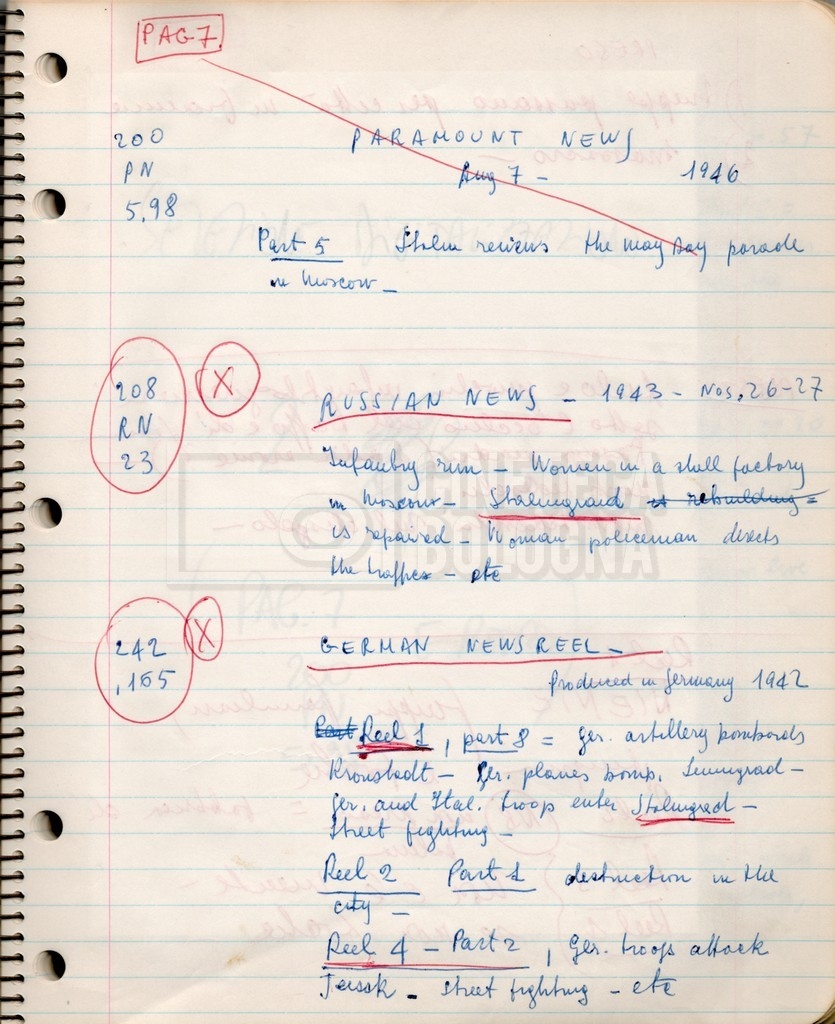 PAG 7
200
PN
5,98
PARAMOUNT NEWS
Aug 7 - 1946
Part 5 Stalin reviews the may Day parade
in Moscow -
208
RN
23
X
RUSSIAN NEWS - 1943 - Nos. 26-27
Infantry run - Women in a shell factory
in Moscow - Stalingrad is rebuilding =
is repaired - Woman policeman directs
the traffic - etc
CINETECA
BOLOGNA
242
,165
X
GERMAN NEWSREEL -
Produced in Germany 1942
Part Reel 1, part 8 = Ger. artillery bombards
Kronstadt - Ger. planes bomb. Leningrad -
Ger. and Ital. troops enter Stalingrad -
Street fighting -
Reel 2 Part 1 destruction in the
city -
Reel 4 - Part 2, Ger. troops attack
- Street fighting - etc